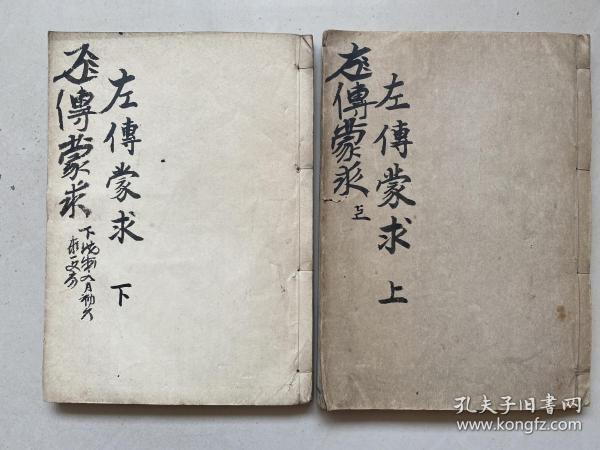 左傳蒙求
上
左傳蒙求
上
左傳蒙求
下
左傳蒙求
下
孔夫子旧書网
www.kongfz.com